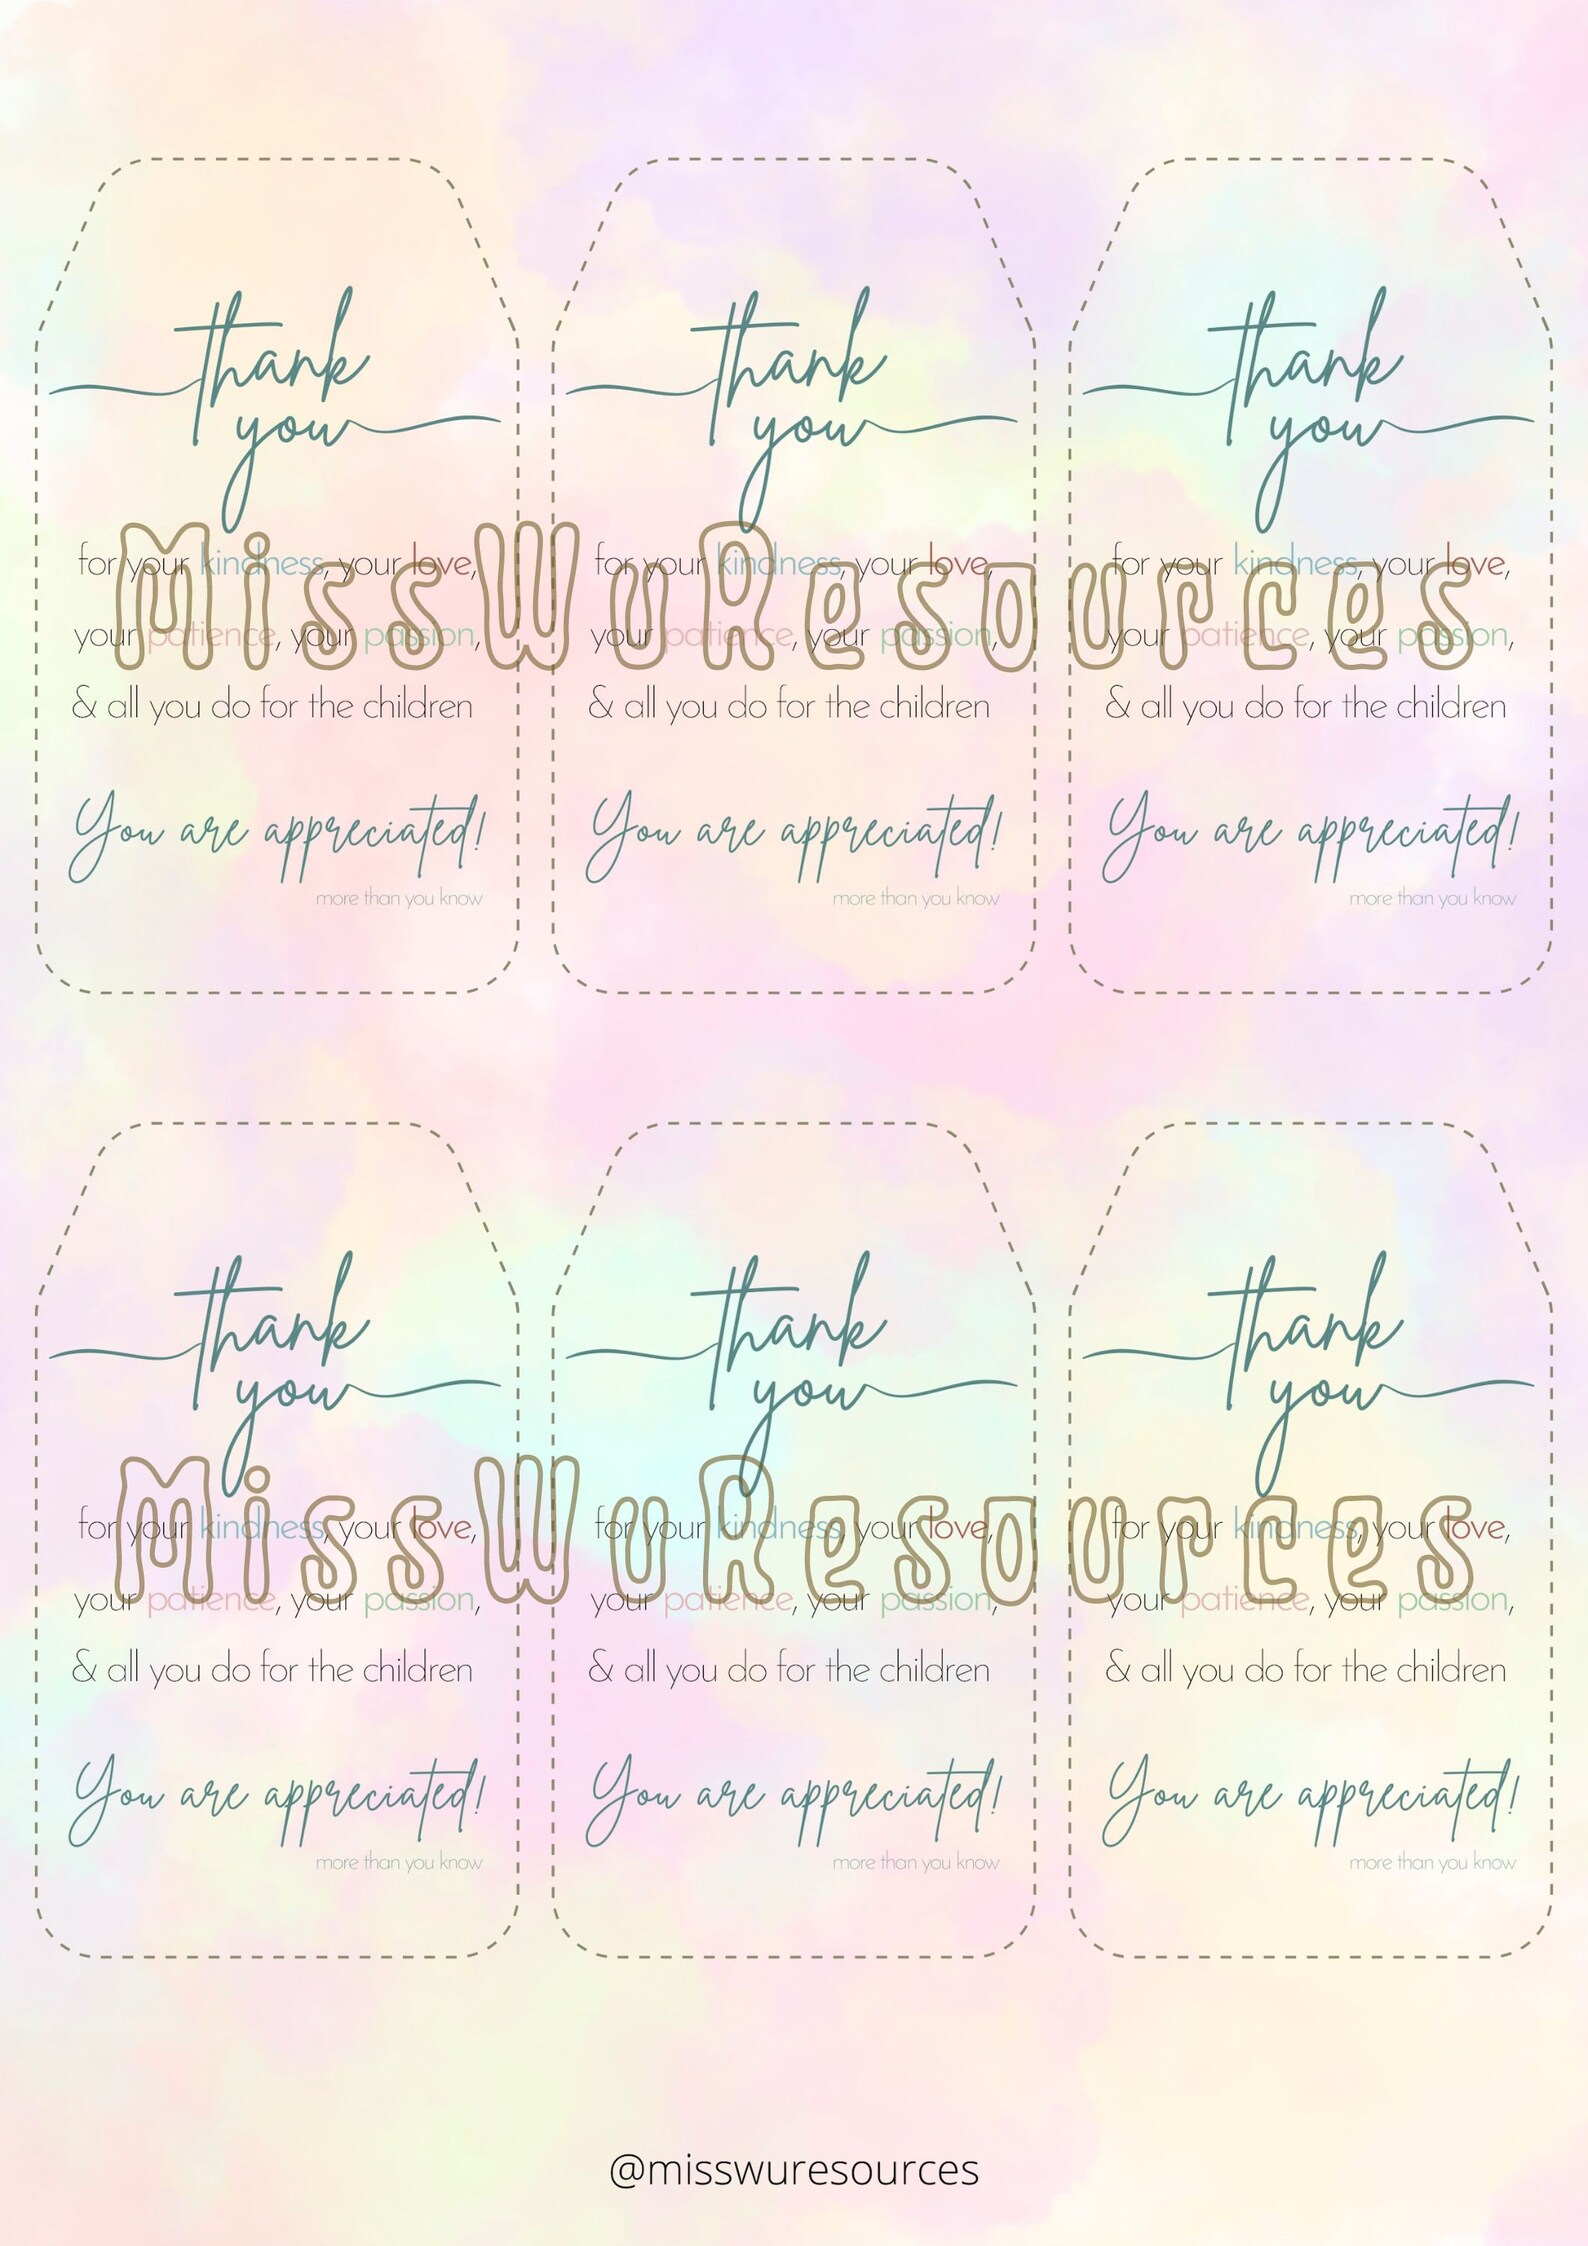 thank thank thank
you you you
MissWuResources
for your kindness, your love, for your kindness, your love, for your kindness, your love,
your patience, your passion, your patience, your passion, your patience, your passion,
& all you do for the children & all you do for the children & all you do for the children
You are appreciated! You are appreciated! You are appreciated!
more than you know more than you know more than you know
thank thank thank
you you you
MissWuResources
for your kindness, your love, for your kindness, your love, for your kindness, your love,
your patience, your passion, your patience, your passion, your patience, your passion,
& all you do for the children & all you do for the children & all you do for the children
You are appreciated! You are appreciated! You are appreciated!
more than you know more than you know more than you know
@misswuresources